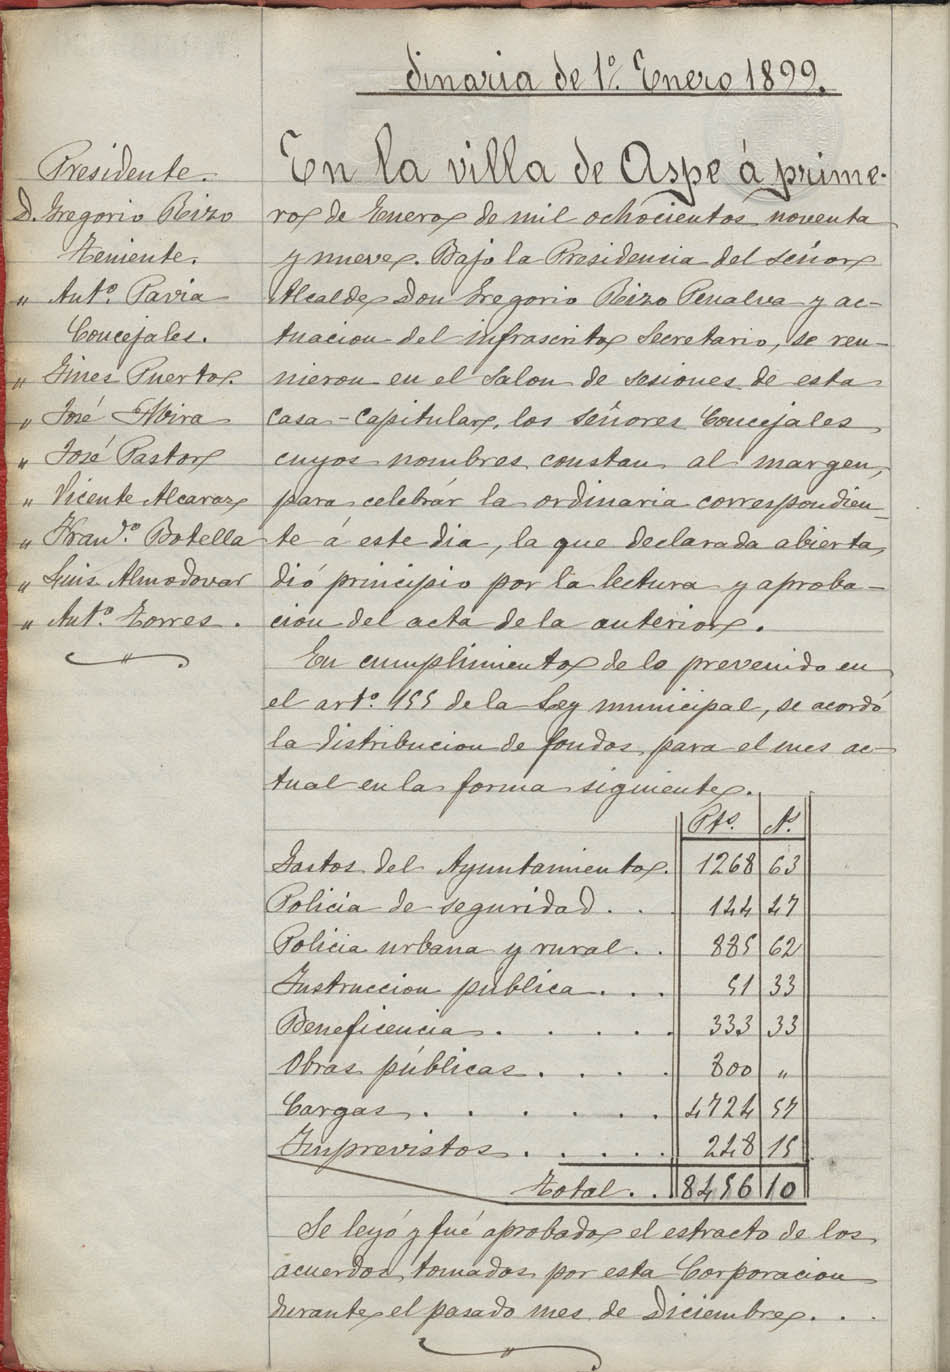 dinaria de 1º. Enero 1899.
Presidente.
D. Gregorio Rizo
Teniente.
„ Antº. Pavia
Concejales.
„ Gines Puerto.
„ José Mira
„ José Pastor
„ Vicente Alcaraz
„ Franco. Botella
„ Luis Almodovar
„ Antº. Torres.
En la villa de Aspe á prime-
ro de Enero de mil ochocientos noventa
y nueve. Bajo la Presidencia del señor
Alcalde Don Gregorio Rizo Penalva y ac-
tuacion del infrascrito Secretario, se reu-
nieron en el Salon de sesiones de esta
casa-capitular, los señores Concejales
cuyos nombres constan al margen,
para celebrár la ordinaria correspondien-
te á este dia, la que declarada abierta
dió principio por la lectura y aproba-
cion del acta de la anterior.
En cumplimiento de lo prevenido en
el artº. 155 de la Ley municipal, se acordó
la distribucion de fondos para el mes ac-
tual en la forma siguiente.
Ptas. Cs.
Gastos del Ayuntamiento. 1268 63
Policia de seguridad. . . 144 47
Policia urbana y rural. . 885 62
Instruccion pública. . . 51 33
Beneficencia. . . . . 333 33
Obras públicas. . . . 800 „
Cargas. . . . . . 4724 57
Imprevistos. . . . . 248 15
Total. . . 8456 10
Se leyó y fué aprobado el estracto de los
acuerdos tomados por esta Corporacion
durante el pasado mes de Diciembre. . .